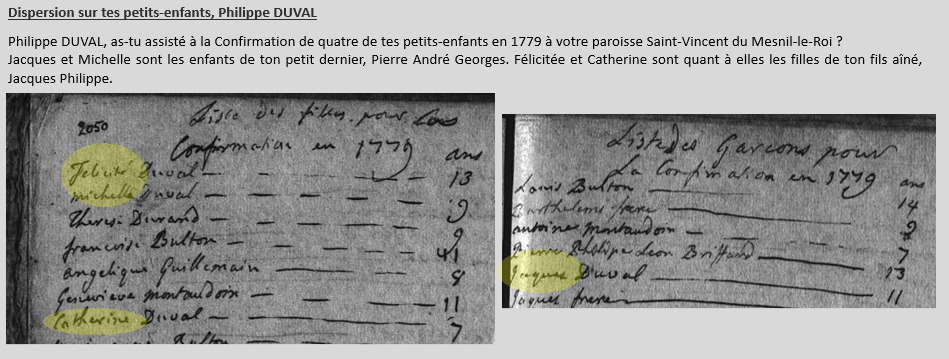 Dispersion sur tes petits-enfants, Philippe DUVAL
Philippe DUVAL, as-tu assisté à la Confirmation de quatre de tes petits-enfants en 1779 à votre paroisse Saint-Vincent du Mesnil-le-Roi ?
Jacques et Michelle sont les enfants de ton petit dernier, Pierre André Georges. Félicitée et Catherine sont quant à elles les filles de ton fils aîné,
Jacques Philippe.
2050
Liste des filles pour
Confirmation en 1779 ans
Felicité Duval 13
michelle Duval
Therese Durand 9
francoise Bulton 9
angelique Guillemain
Genevieve montaudoin 11
Catherine Duval 7
Liste des Garcons pour
La Confirmation en 1779 ans
Louis Bulton 14
Barthelemi frere
antoine montaudoin
Pierre Philipe Leon Briffard 7
Jaques Duval 13
Jaques frere 11